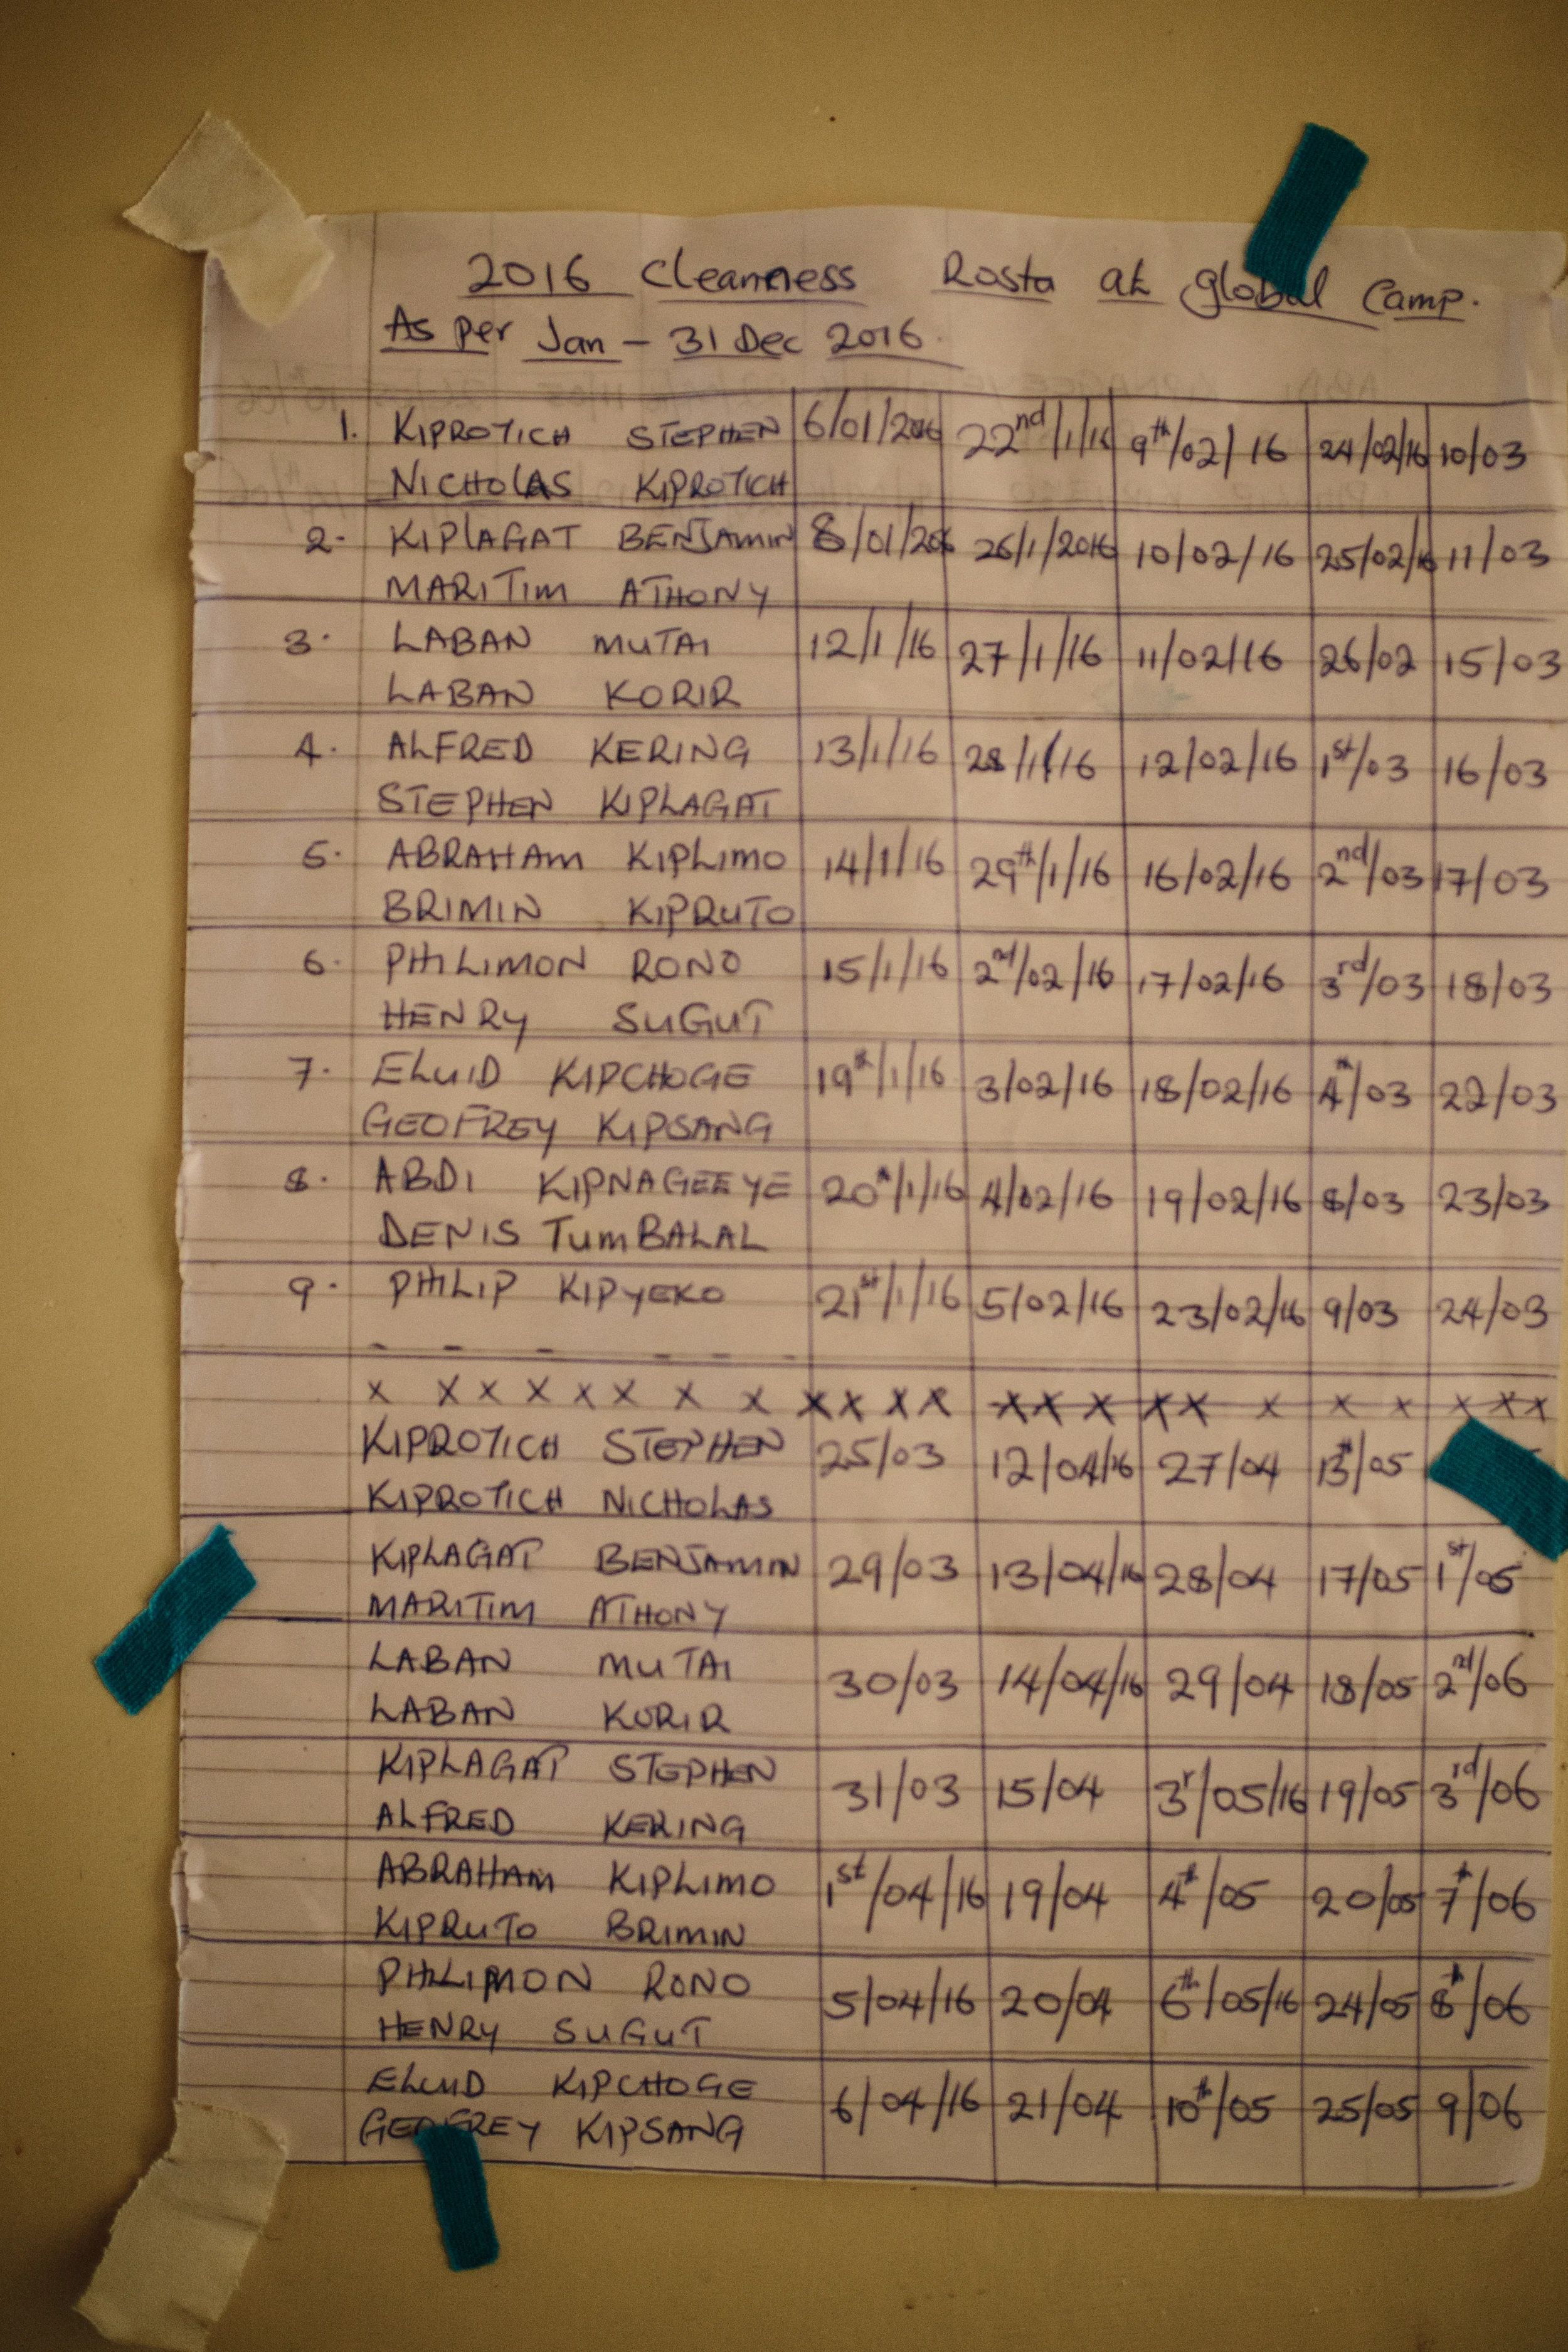 2016 Cleanness Rosta at global Camp.
As per Jan - 31 Dec 2016.
1. KIPROTICH STEPHEN 6/01/2016 22nd/1/16 9th/02/16 24/02/16 10/03
NICHOLAS KIPROTICH
2. KIPLAGAT BENJAMIN 8/01/206 26/1/2016 10/02/16 25/02/16 11/03
MARITIM ATHONY
3. LABAN MUTAI 12/1/16 27/1/16 11/02/16 26/02 15/03
LABAN KORIR
4. ALFRED KERING 13/1/16 28/1/16 12/02/16 1st/03 16/03
STEPHEN KIPLAGAT
5. ABRAHAM KIPLIMO 14/1/16 29th/1/16 16/02/16 2nd/03 17/03
BRIMIN KIPRUTO
6. PHILIMON RONO 15/1/16 2nd/02/16 17/02/16 3rd/03 18/03
HENRY SUGUT
7. ELUID KIPCHOGE 19th/1/16 3/02/16 18/02/16 4th/03 22/03
GEOFREY KIPSANG
8. ABDI KIPNAGEEYE 20th/1/16 4/02/16 19/02/16 8/03 23/03
DENIS TumBALAL
9. PHILIP KIPYEKO 21st/1/16 5/02/16 23/02/16 9/03 24/03
- - - - - -
x x x x x x x x x x x x x x x x x x x x x x x
KIPROTICH STEPHEN 25/03 12/04/16 27/04 13th/05
KIPROTICH NICHOLAS
KIPLAGAT BENJAMIN 29/03 13/04/16 28/04 17/05 1st/05
MARITIM ATHONY
LABAN MUTAI 30/03 14/04/16 29/04 18/05 2nd/06
LABAN KORIR
KIPLAGAT STEPHEN 31/03 15/04 3r/05/16 19/05 3rd/06
ALFRED KERING
ABRAHAM KIPLIMO 1st/04/16 19/04 4th/05 20/05 7th/06
KIPRUTO BRIMIN
PHILIMON RONO 5/04/16 20/04 6th/05/16 24/05 8th/06
HENRY SUGUT
ELUID KIPCHOGE 6/04/16 21/04 10th/05 25/05 9/06
GEOFREY KIPSANG